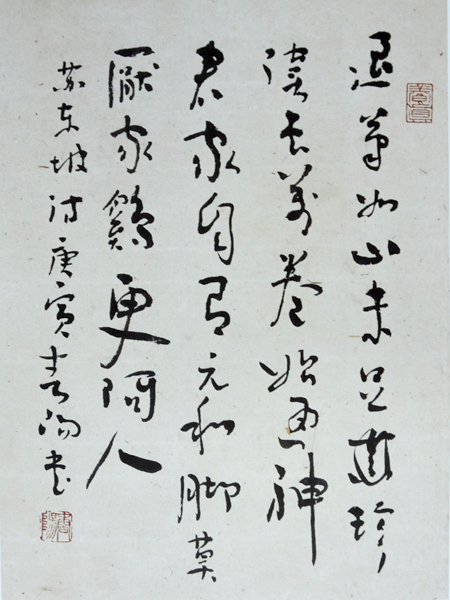 退筆如山未足珍
讀書萬卷始通神
君家自有元和脚莫
厭家鷄更問人
蘇東坡詩庚寅書